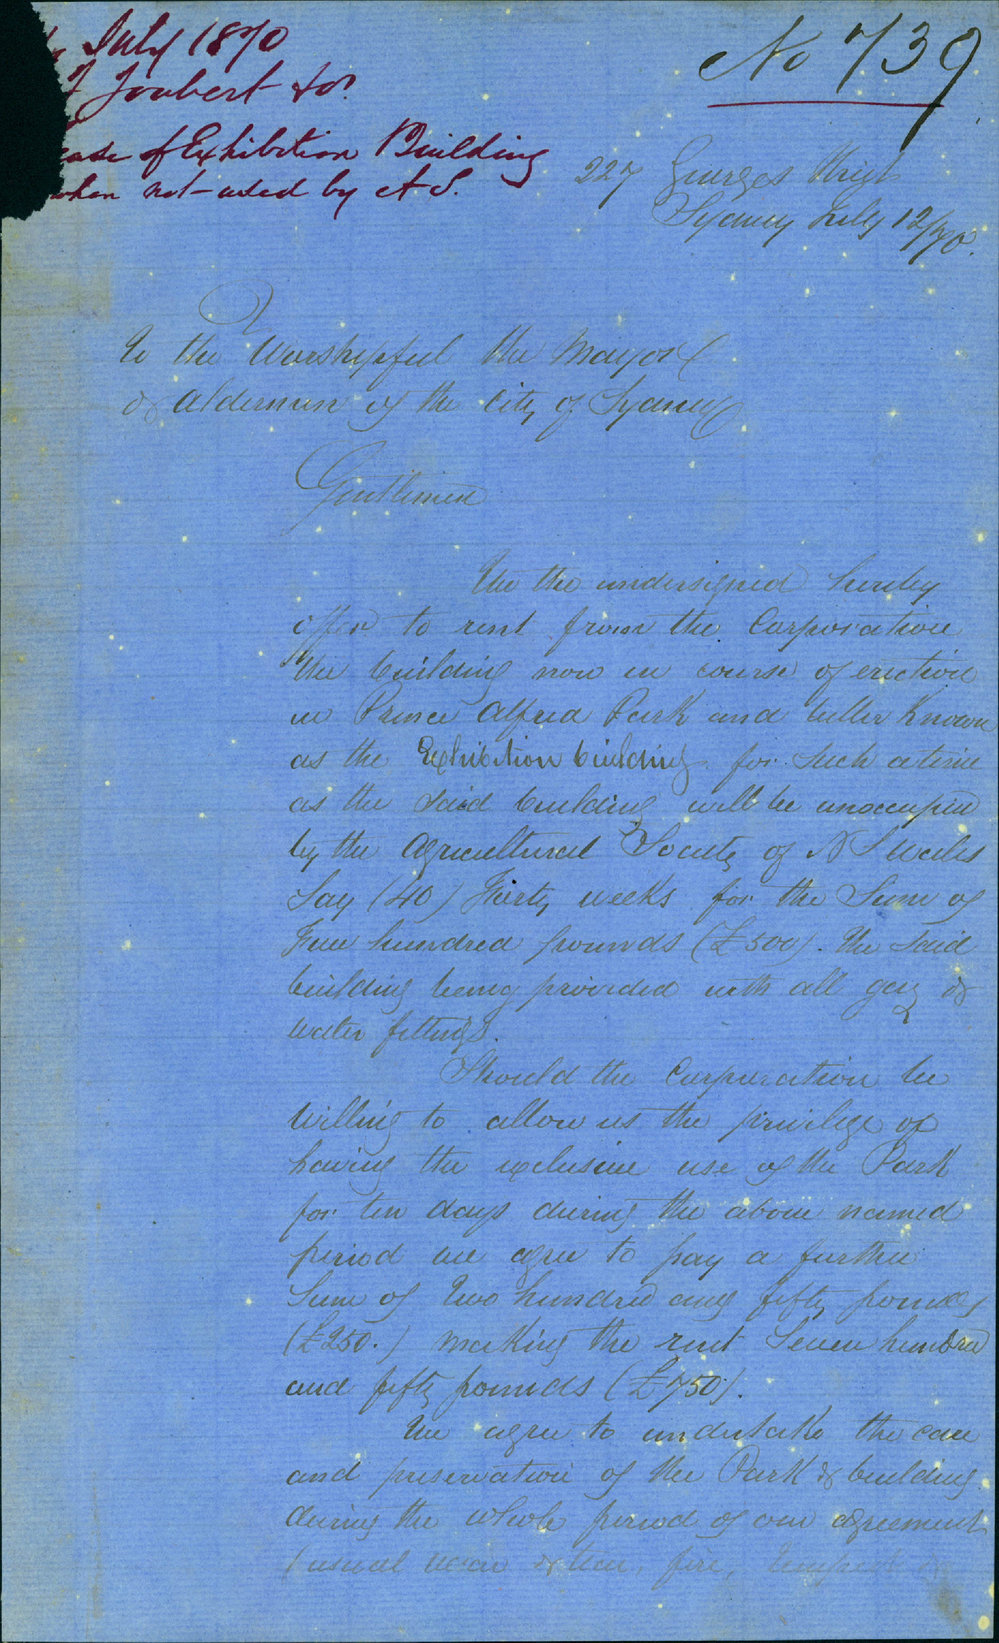 July 1870
Joubert & or
ease of Exhibition Building
when not used by A S.
No 739
227 George Street
Sydney July 12/70.
To the Worshipful the Mayor
& Aldermen of the City of Sydney
Gentlemen
We the undersigned hereby
offer to rent from the Corporation
the building now in course of erection
in Prince Alfred Park and better known
as the Exhibition building for such a time
as the said building will be unoccupied
by the Agricultural Society of N S Wales
Say (40) Forty weeks for the Sum of
Five hundred pounds (£500). The said
building being provided with all gas &
water fittings.
Should the Corporation be
willing to allow us the privilege of
having the exclusive use of the Park
for ten days during the above named
period we agree to pay a further
Sum of Two hundred and fifty pounds
(£250.) making the rent Seven hundred
and fifty pounds (£750).
We agree to undertake the care
and preservation of the Park & building
during the whole period of our agreement
(usual wear & tear, fire, tempest